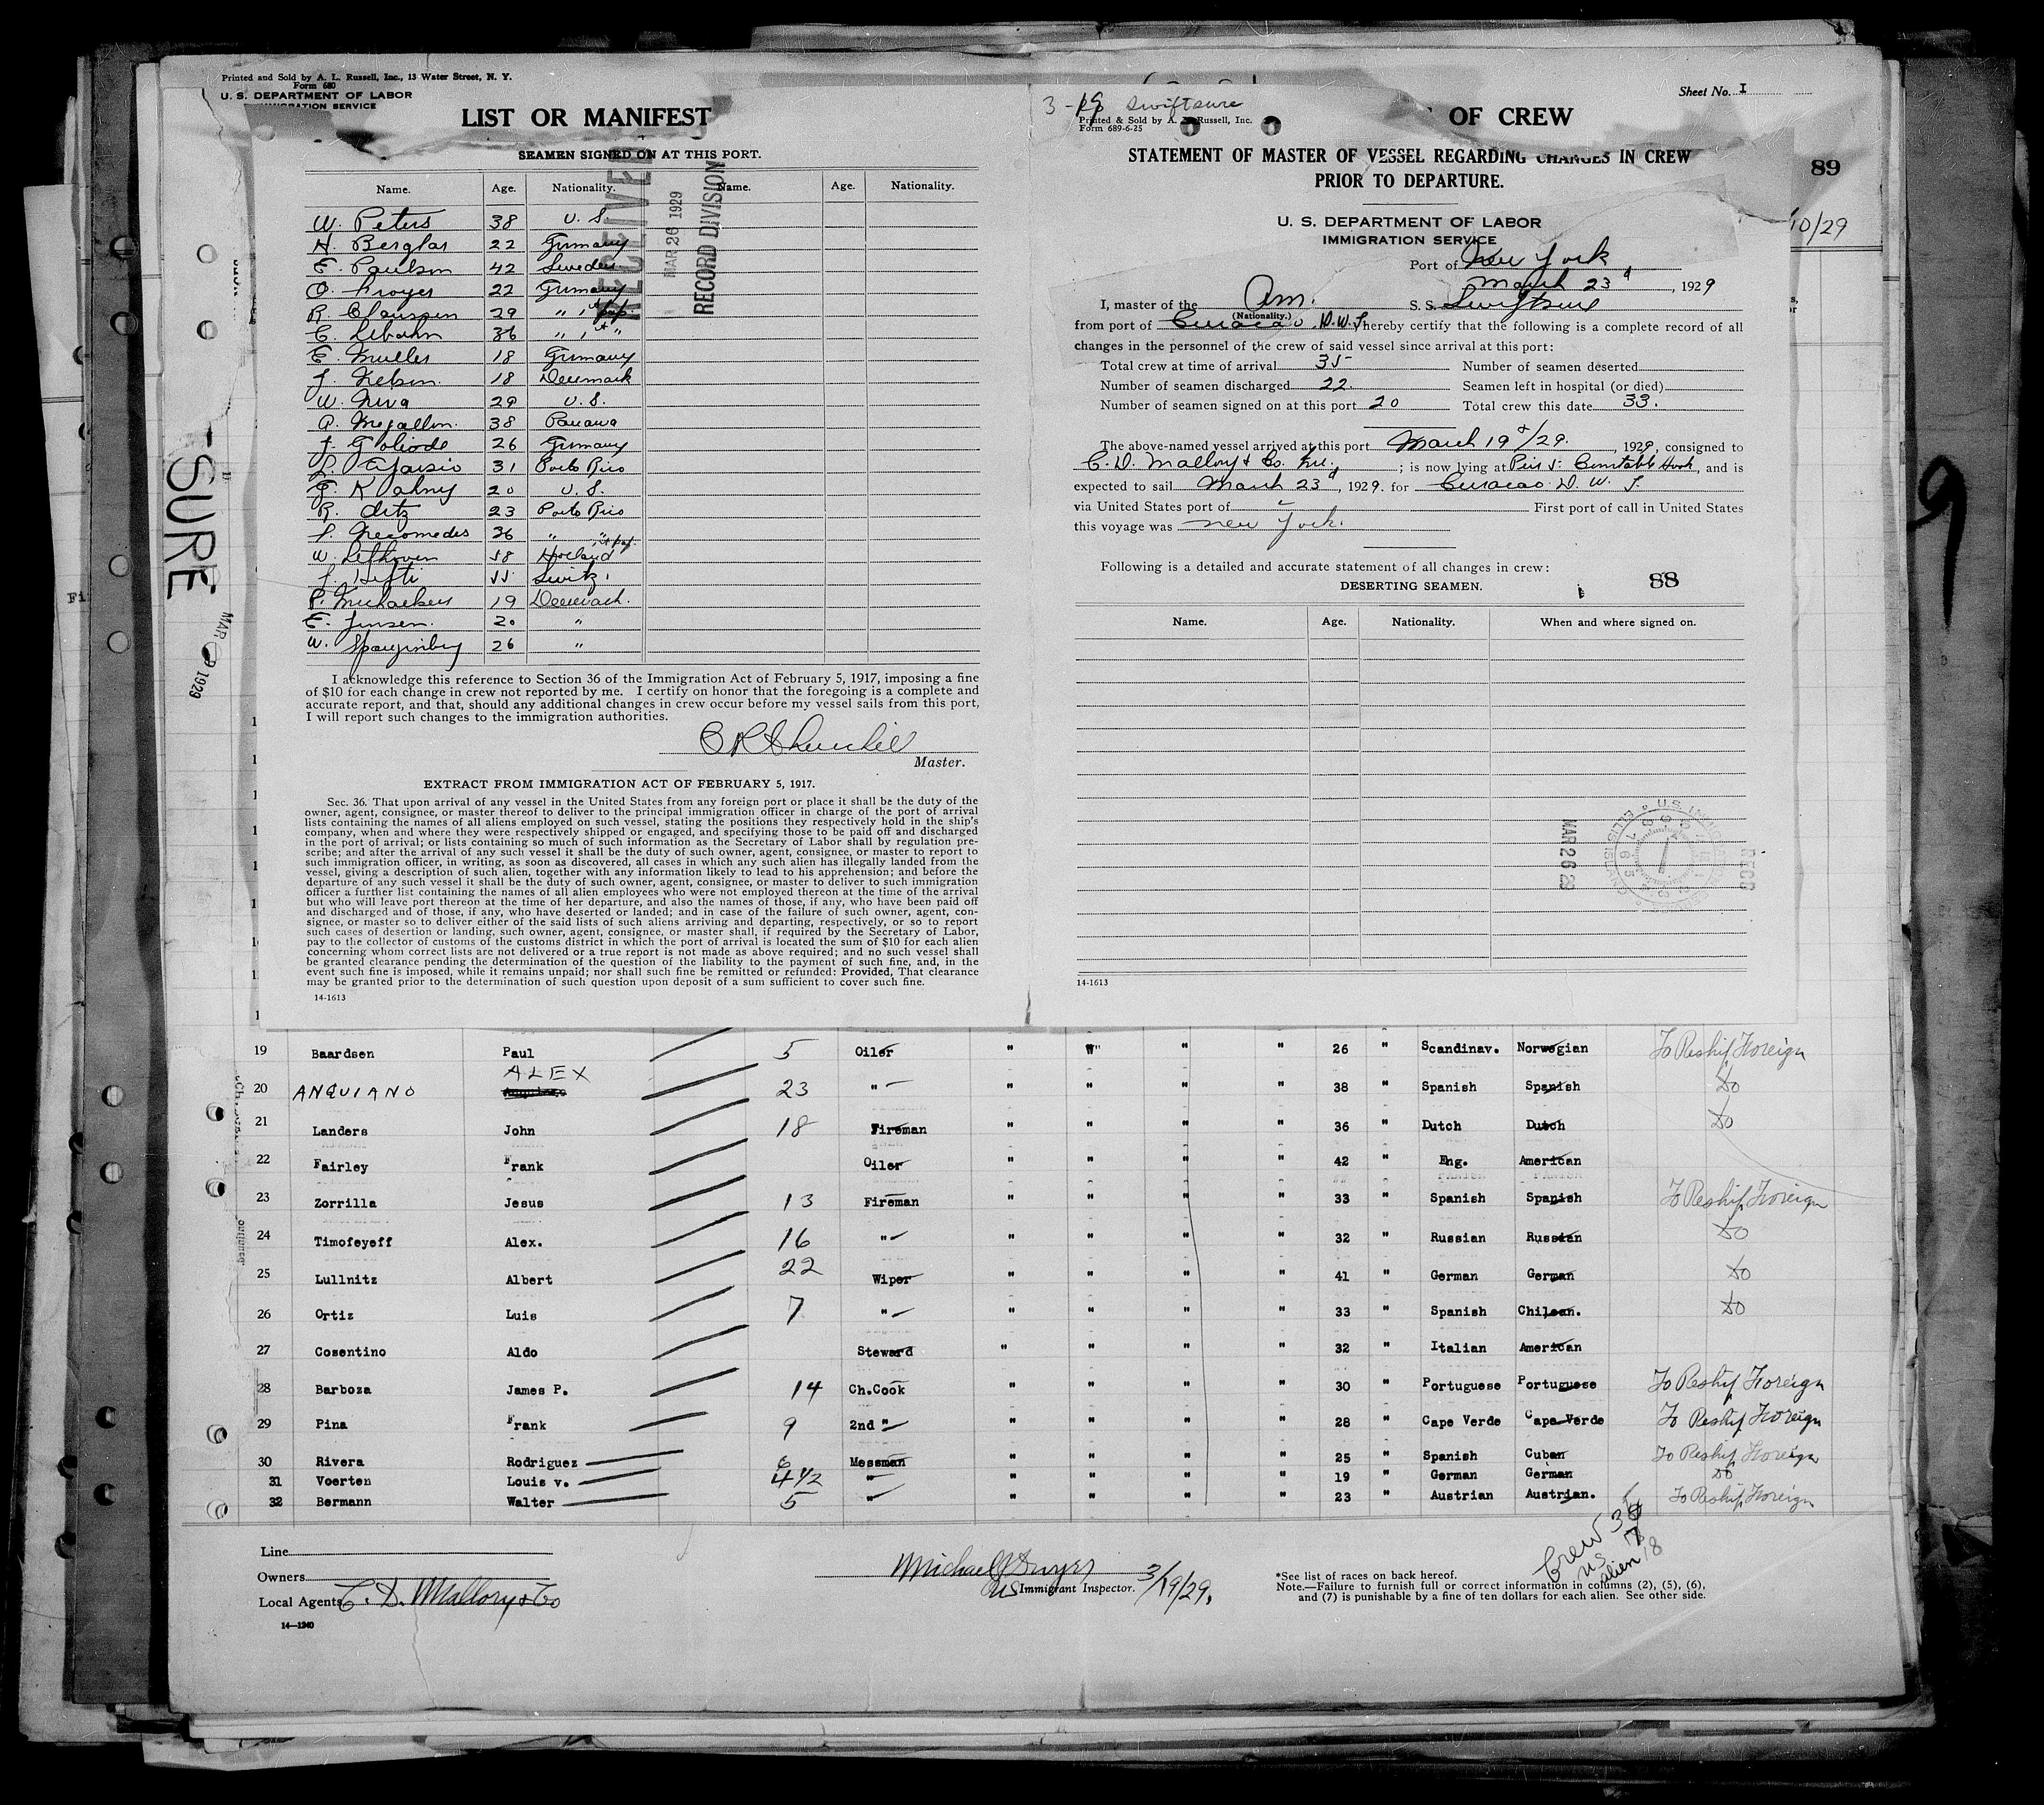 Printed and Sold by A. L. Russell, Inc., 13 Water Street, N. Y.
Form 680
U. S. DEPARTMENT OF LABOR
IMMIGRATION SERVICE
LIST OR MANIFEST
SEAMEN SIGNED ON AT THIS PORT.
Name. Age. Nationality. Name. Age. Nationality.
W. Peters 38 U. S.
H. Berglar 22 Germany
E. Paulsen 42 Sweden
O. 22 Germany
R. Claussen 29 " 1st pap.
C. 36 " 1st "
E. Mueller 18 Germany
J. Nelson. 18 Denmark
W. 29 U. S.
A. Megallon. 38 Panama
J. 26 Germany
L. 31 Porto Rico
20 U. S.
R. 23 Porto Rico
36 "
W. 58 Holland 1st pap.
J. Hefti 55. Switz.
P. 19 Denmark.
E. Jensen. 20 "
W. 26 "
RECEIVED
MAR 26 1929
RECORD DIVISION
I acknowledge this reference to Section 36 of the Immigration Act of February 5, 1917, imposing a fine
of $10 for each change in crew not reported by me. I certify on honor that the foregoing is a complete and
accurate report, and that, should any additional changes in crew occur before my vessel sails from this port,
I will report such changes to the immigration authorities.
Master.
EXTRACT FROM IMMIGRATION ACT OF FEBRUARY 5, 1917.
Sec. 36. That upon arrival of any vessel in the United States from any foreign port or place it shall be the duty of the
owner, agent, consignee, or master thereof to deliver to the principal immigration officer in charge of the port of arrival
lists containing the names of all aliens employed on such vessel, stating the positions they respectively hold in the ship's
company, when and where they were respectively shipped or engaged, and specifying those to be paid off and discharged
in the port of arrival; or lists containing so much of such information as the Secretary of Labor shall by regulation pre-
scribe; and after the arrival of any such vessel it shall be the duty of such owner, agent, consignee, or master to report to
such immigration officer, in writing, as soon as discovered, all cases in which any such alien has illegally landed from the
vessel, giving a description of such alien, together with any information likely to lead to his apprehension; and before the
departure of any such vessel it shall be the duty of such owner, agent, consignee, or master to deliver to such immigration
officer a further list containing the names of all alien employees who were not employed thereon at the time of the arrival
but who will leave port thereon at the time of her departure, and also the names of those, if any, who have been paid off
and discharged and of those, if any, who have deserted or landed; and in case of the failure of such owner, agent, con-
signee, or master so to deliver either of the said lists of such aliens arriving and departing, respectively, or so to report
such cases of desertion or landing, such owner, agent, consignee, or master shall, if required by the Secretary of Labor,
pay to the collector of customs of the customs district in which the port of arrival is located the sum of $10 for each alien
concerning whom correct lists are not delivered or a true report is not made as above required; and no such vessel shall
be granted clearance pending the determination of the question of the liability to the payment of such fine, and, in the
event such fine is imposed, while it remains unpaid; nor shall such fine be remitted or refunded: Provided, That clearance
may be granted prior to the determination of such question upon deposit of a sum sufficient to cover such fine.
14-1613
-SURE
MAR 1929
3-19 Swiftsure
Printed & Sold by A. L. Russell, Inc.
Form 689-6-25
OF CREW
Sheet No. I
STATEMENT OF MASTER OF VESSEL REGARDING CHANGES IN CREW
PRIOR TO DEPARTURE.
89
10/29
U. S. DEPARTMENT OF LABOR
IMMIGRATION SERVICE
Port of New York
March 23d, 1929
I, master of the Am. S. S. Swiftsure
(Nationality.)
from port of Curacao, D. W. I. hereby certify that the following is a complete record of all
changes in the personnel of the crew of said vessel since arrival at this port:
Total crew at time of arrival 35 Number of seamen deserted
Number of seamen discharged 22. Seamen left in hospital (or died)
Number of seamen signed on at this port 20 Total crew this date 33.
The above-named vessel arrived at this port March 19th/29., 1929, consigned to
C. D. Mallory & Co. Inc.; is now lying at Pier 5. Constable Hook, and is
expected to sail March 23d, 1929. for Curacao D. W. I.
via United States port of First port of call in United States
this voyage was New York.
Following is a detailed and accurate statement of all changes in crew:
88
DESERTING SEAMEN.
Name. Age. Nationality. When and where signed on.
MAR 26 29
U.S. IMMIGRATION
ELLIS ISLAND
RECD
14-1613
19 Baardsen Paul 5 Oiler " W" " " 26 " Scandinav. Norwegian To Reship Foreign
20 ANQUIANO ALEX 23 " " " " " 38 " Spanish Spanish Do
21 Landers John 18 Fireman " " " " 36 " Dutch Dutch Do
22 Fairley Frank Oiler " " " " 42 " Eng. American
23 Zorrilla Jesus 13 Fireman " " " " 33 " Spanish Spanish To Reship Foreign
24 Timofeyeff Alex. 16 " " " " " 32 " Russian Russian Do
25 Lullnitz Albert 22 Wiper " " " " 41 " German German Do
26 Ortiz Luis 7 " " " " " 33 " Spanish Chilean. Do
27 Cosentino Aldo Steward " " " " 32 " Italian American
28 Barboza James P. 14 Ch.Cook " " " " 30 " Portuguese Portuguese To Reship Foreign
29 Pina Frank 9 2nd " " " " " 28 " Cape Verde Cape Verde To Reship Foreign
30 Rivera Rodriguez 6 Messman " " " " 25 " Spanish Cuban To Reship Foreign
31 Voerten Louis v. 4 1/2 " " " " " 19 " German German Do
32 Bermann Walter 5 " " " " " 23 " Austrian Austrian. To Reship Foreign
Crew 35
US 17
alien 18
Line
Owners
Local Agents C. D. Mallory & Co
14-1240
Michael Dwyer
US Immigrant Inspector. 3/19/29.
*See list of races on back hereof.
Note.—Failure to furnish full or correct information in columns (2), (5), (6),
and (7) is punishable by a fine of ten dollars for each alien. See other side.
9